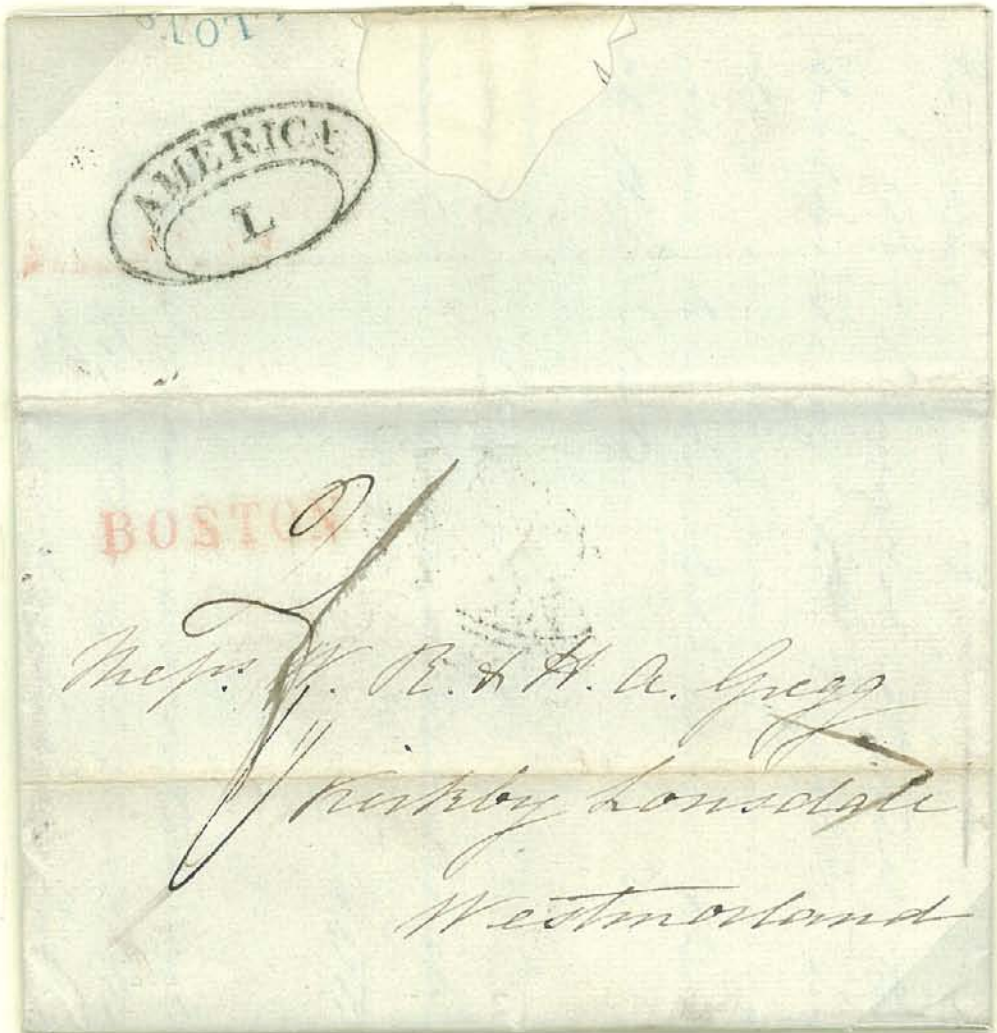 AMERICA
L
BOSTON
Mess. W. R. & H. A. Gregg
Kirkby Lonsdale
Westmorland